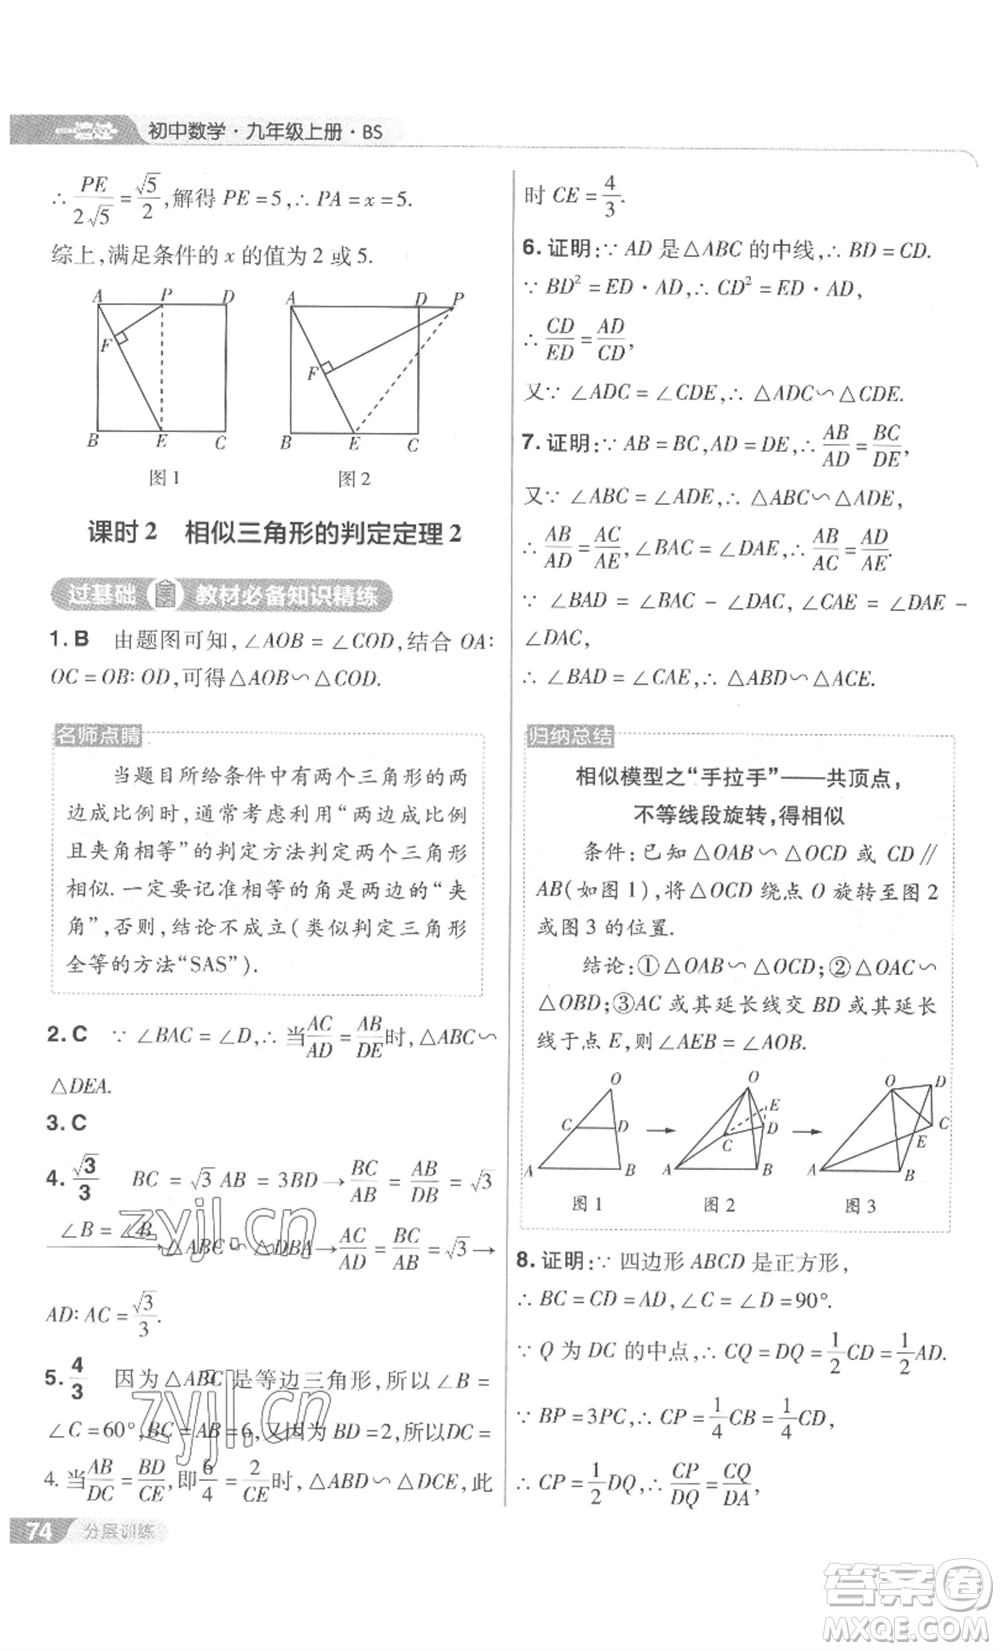 一遍过 初中数学·九年级上册·BS
∴ PE/2√5 = √5/2,解得 PE = 5,∴ PA = x = 5.
综上,满足条件的 x 的值为 2 或 5.
A P D
F
B E C
图 1
A D P
F
B E C
图 2
课时 2 相似三角形的判定定理 2
过基础 教材必备知识精练
1. B 由题图可知,∠AOB = ∠COD,结合 OA∶
OC = OB∶OD,可得△AOB∽△COD.
名师点睛
当题目所给条件中有两个三角形的两
边成比例时,通常考虑利用“两边成比例
且夹角相等”的判定方法判定两个三角形
相似. 一定要记准相等的角是两边的“夹
角”,否则,结论不成立(类似判定三角形
全等的方法“SAS”).
2. C ∵ ∠BAC = ∠D,∴ 当 AC/AD = AB/DE 时,△ABC∽
△DEA.
3. C
4. √3/3 BC = √3 AB = 3BD → BC/AB = AB/DB = √3
∠B = ∠B → △ABC∽△DBA → AC/AD = BC/AB = √3 →
AD∶AC = √3/3.
5. 4/3 因为△ABC 是等边三角形,所以∠B =
∠C = 60°,BC = AB = 6,又因为 BD = 2,所以 DC =
4. 当 AB/DC = BD/CE,即 6/4 = 2/CE 时,△ABD∽△DCE,此
74 分层训练
时 CE = 4/3.
6. 证明:∵ AD 是△ABC 的中线,∴ BD = CD.
∵ BD² = ED · AD,∴ CD² = ED · AD,
∴ CD/ED = AD/CD,
又∵ ∠ADC = ∠CDE,∴ △ADC∽△CDE.
7. 证明:∵ AB = BC,AD = DE,∴ AB/AD = BC/DE,
又∵ ∠ABC = ∠ADE,∴ △ABC∽△ADE,
∴ AB/AD = AC/AE,∠BAC = ∠DAE,∴ AB/AC = AD/AE.
∵ ∠BAD = ∠BAC - ∠DAC,∠CAE = ∠DAE -
∠DAC,
∴ ∠BAD = ∠CAE,∴ △ABD∽△ACE.
归纳总结
相似模型之“手拉手”——共顶点,
不等线段旋转,得相似
条件:已知△OAB∽△OCD 或 CD∥
AB(如图 1),将△OCD 绕点 O 旋转至图 2
或图 3 的位置.
结论:①△OAB∽△OCD;②△OAC∽
△OBD;③AC 或其延长线交 BD 或其延长
线于点 E,则∠AEB = ∠AOB.
O C D A B
图 1
O E C D A B
图 2
O D C E A B
图 3
8. 证明:∵ 四边形 ABCD 是正方形,
∴ BC = CD = AD,∠C = ∠D = 90°.
∵ Q 为 DC 的中点,∴ CQ = DQ = 1/2 CD = 1/2 AD.
∵ BP = 3PC,∴ CP = 1/4 CB = 1/4 CD,
∴ CP = 1/2 DQ,∴ CP/DQ = CQ/DA,
zyjl.cn
zyjl.cn
答案圈
MXQE.COM